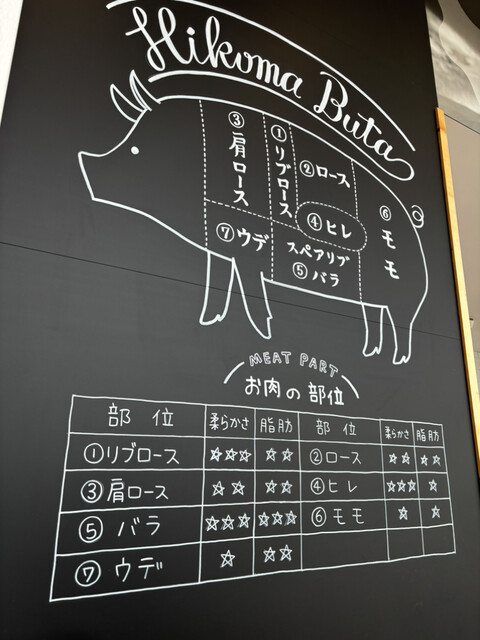 Hikoma Buta
③肩ロース
①リブロース
②ロース
④ヒレ
⑥モモ
⑦ウデ
スペアリブ
⑤バラ
MEAT PART
お肉の部位
部位 柔らかさ 脂肪 部位 柔らかさ 脂肪
①リブロース ☆☆☆ ☆☆ ②ロース ☆☆ ☆☆
③肩ロース ☆☆ ☆☆ ④ヒレ ☆☆☆ ☆
⑤バラ ☆☆☆ ☆☆☆ ⑥モモ ☆ ☆
⑦ウデ ☆ ☆☆